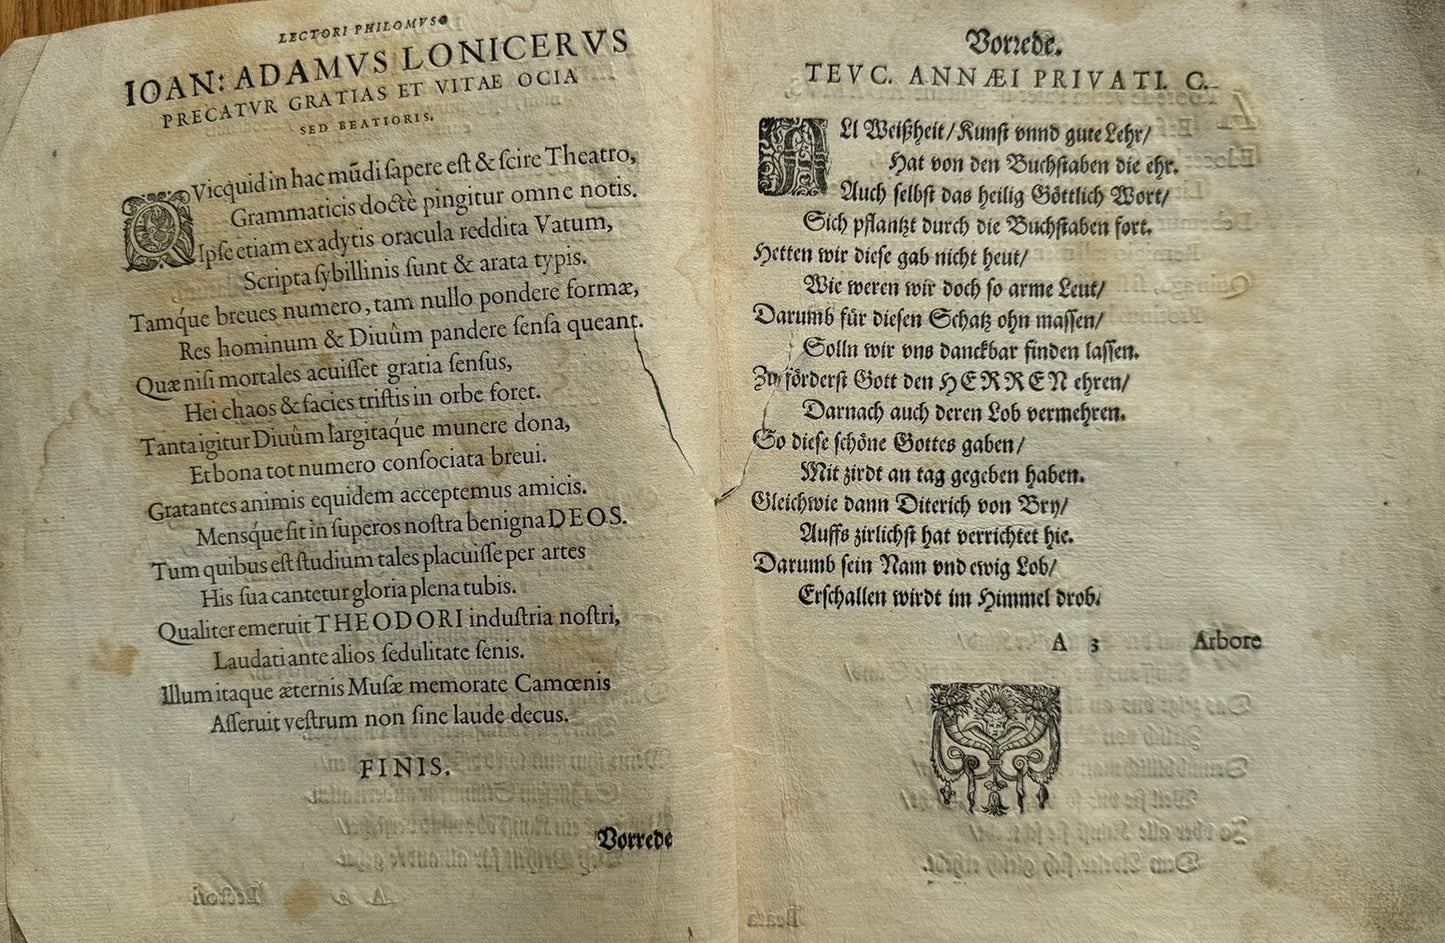 LECTORI PHILOMVSO
IOAN: ADAMVS LONICERVS
PRECATVR GRATIAS ET VITAE OCIA
SED BEATIORIS.
QVicquid in hac mũdi ſapere eſt & ſcire Theatro,
Grammaticis doctè pingitur omne notis.
Ipſe etiam ex adytis oracula reddita Vatum,
Scripta ſybillinis ſunt & arata typis.
Tamq́ue breues numero, tam nullo pondere formæ,
Res hominum & Diuûm pandere ſenſa queant.
Quæ niſi mortales acuiſſet gratia ſenſus,
Hei chaos & facies triſtis in orbe foret.
Tanta igitur Diuûm largitaq́ue munere dona,
Et bona tot numero conſociata breui.
Gratantes animis equidem acceptemus amicis.
Mensq́ue ſit in ſuperos noſtra benigna DEOS.
Tum quibus eſt ſtudium tales placuiſſe per artes
His ſua cantetur gloria plena tubis.
Qualiter emeruit THEODORI induſtria noſtri,
Laudati ante alios ſedulitate ſenis.
Illum itaque æternis Muſæ memorate Camœnis
Aſſeruit veſtrum non ſine laude decus.
FINIS.
Vorrede
Vorrede.
TEVC. ANNÆI PRIVATI. C.
ALl Weißheit/ Kunſt vnnd gute Lehr/
Hat von den Buchſtaben die ehr.
Auch ſelbſt das heilig Göttlich Wort/
Sich pflantzt durch die Buchſtaben fort.
Hetten wir dieſe gab nicht heut/
Wie weren wir doch ſo arme Leut/
Darumb für dieſen Schatz ohn maſſen/
Solln wir vns danckbar finden laſſen.
Zu förderſt Gott den HERREN ehren/
Darnach auch deren Lob vermehren.
So dieſe ſchöne Gottes gaben/
Mit zirdt an tag gegeben haben.
Gleichwie dann Diterich von Bry/
Auffs zirlichſt hat verrichtet hie.
Darumb ſein Nam vnd ewig Lob/
Erſchallen wirdt im Himmel drob.
A 3 Arbore